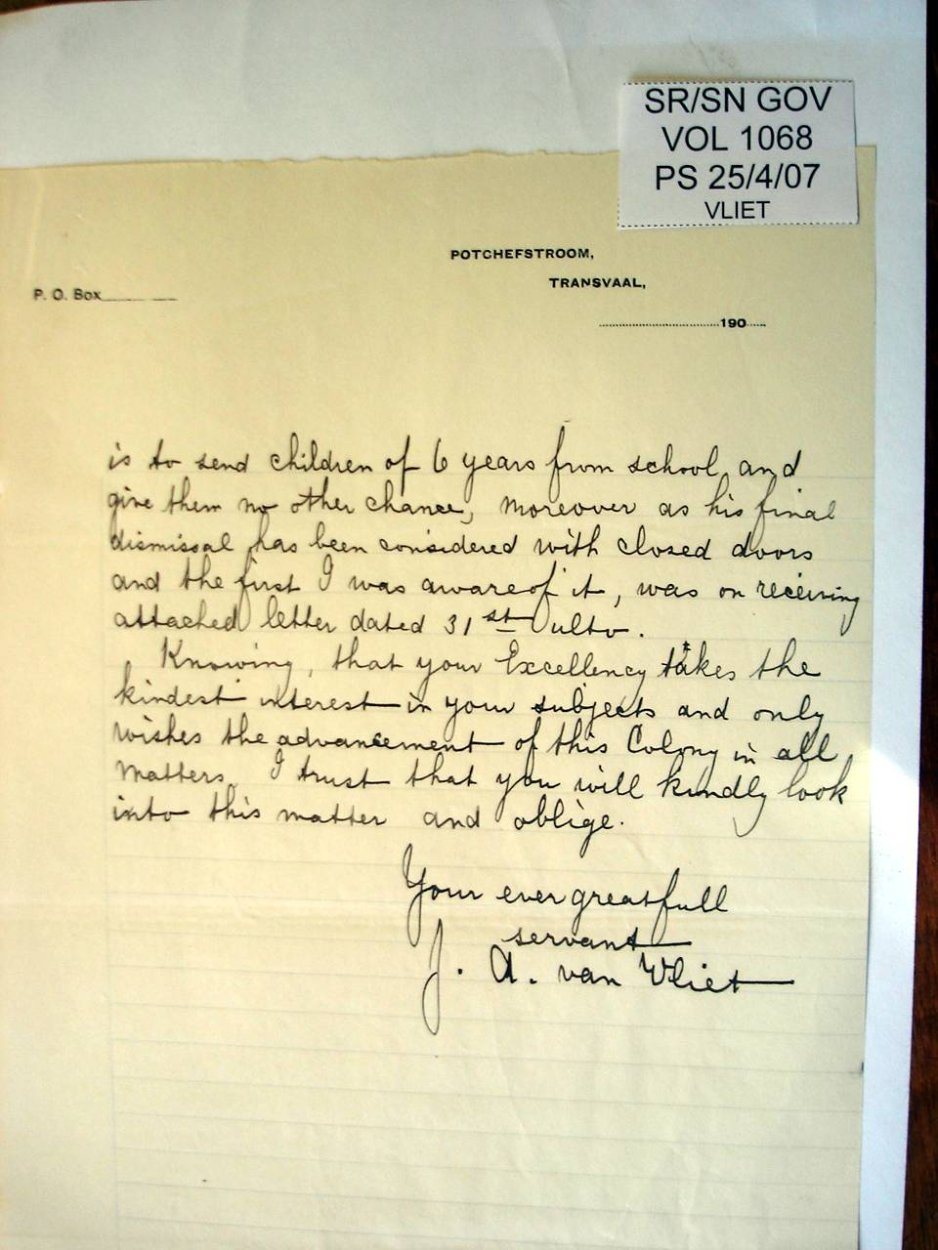 SR/SN GOV
VOL 1068
PS 25/4/07
VLIET
POTCHEFSTROOM,
TRANSVAAL,
P. O. Box
190
is to send children of 6 years from school, and
give them no other chance, moreover as his final
dismissal has been considered with closed doors
and the first I was aware of it, was on receiving
attached letter dated 31st ulto.
Knowing, that your Excellency takes the
kindest interest in your subjects and only
wishes the advancement of this Colony in all
matters I trust that you will kindly look
into this matter and oblige.
Your ever greatfull
servant
J. A. van Vliet